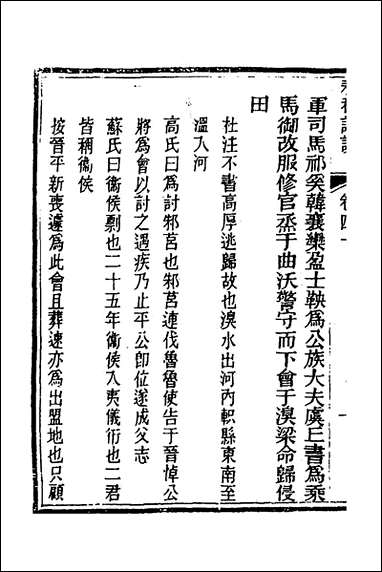 軍司馬祁奚韓襄欒盈士鞅爲公族大夫虞丘書爲乘
馬御改服修官烝于曲沃警守而下會于溴梁命歸侵
田
杜注不書高厚逃歸故也溴水出河內軹縣東南至
溫入河
高氏曰爲討邾莒也邾莒連伐魯魯使告于晉悼公
將爲會以討之遇疾乃止平公卽位遂成父志
蘇氏曰衞侯剽也二十五年衞侯入夷儀衎也二君
皆稱衞侯
按晉平新喪遽爲此會且葬速亦爲出盟地也只顧